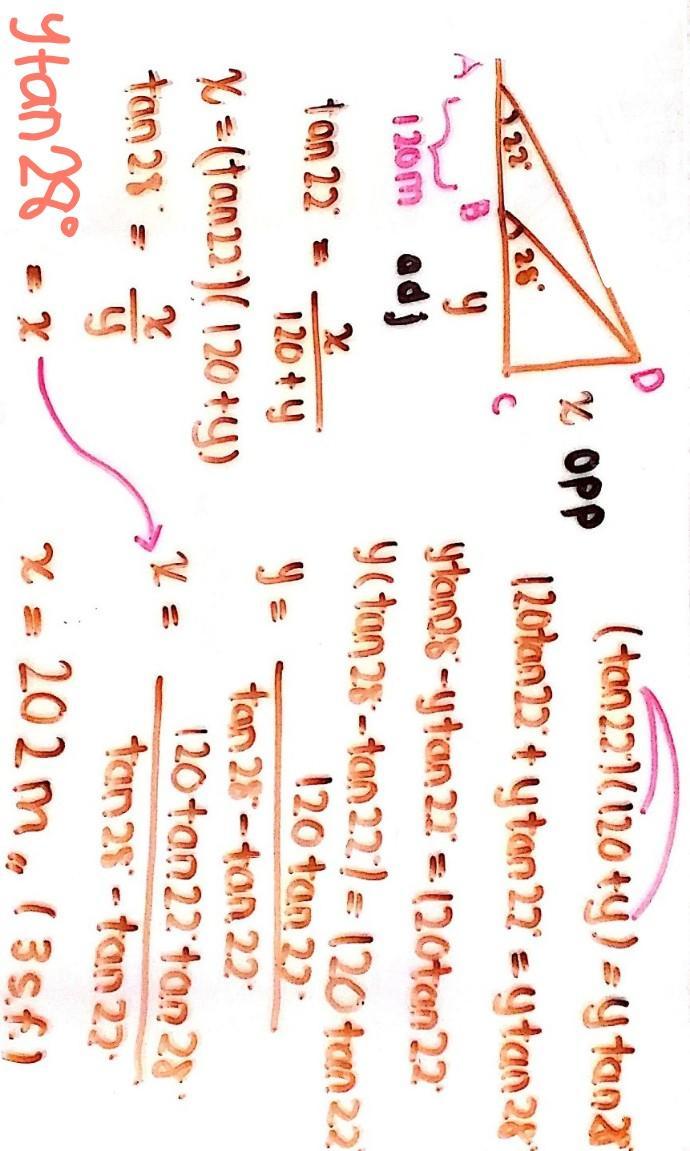 D
22°
28°
x opp
A B C
120m
y
adj
tan 22° = x / 120 + y
x = (tan 22°)(120 + y)
tan 28° = x / y
y tan 28° = x
(tan 22°)(120 + y) = y tan 28°
120 tan 22° + y tan 22° = y tan 28°
y tan 28° - y tan 22° = 120 tan 22°
y (tan 28° - tan 22°) = 120 tan 22°
y = 120 tan 22° / tan 28° - tan 22°
x = 120 tan 22° tan 28° / tan 28° - tan 22°
x = 202 m,, (3 s.f.)